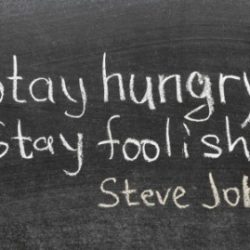 Stay hungry
Stay foolish
Steve Job